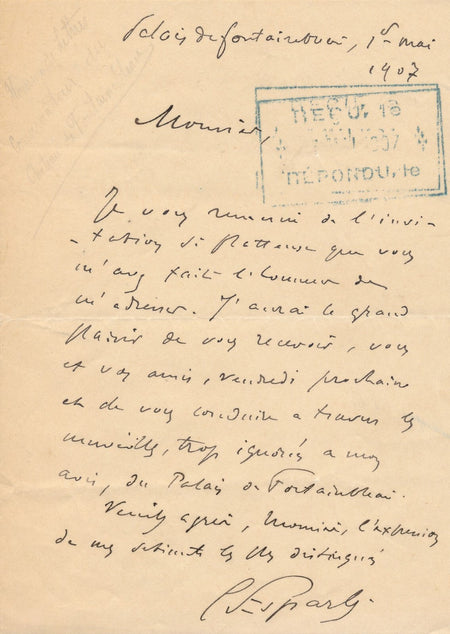 Palais de Fontainebleau, 1er mai
1907
REÇU, le
1907
RÉPONDU, le
Monsieur,
Je vous remercie de l'invi-
-tation si flatteuse que vous
m'avez fait l'honneur de
m'adresser. J'aurai le grand
plaisir de vous recevoir, vous
et vos amis, vendredi prochain
et de vous conduire à travers les
merveilles, trop ignorées à mon
avis, du Palais de Fontainebleau.
Veuillez agréer, Monsieur, l'expression
de mes sentiments les plus distingués